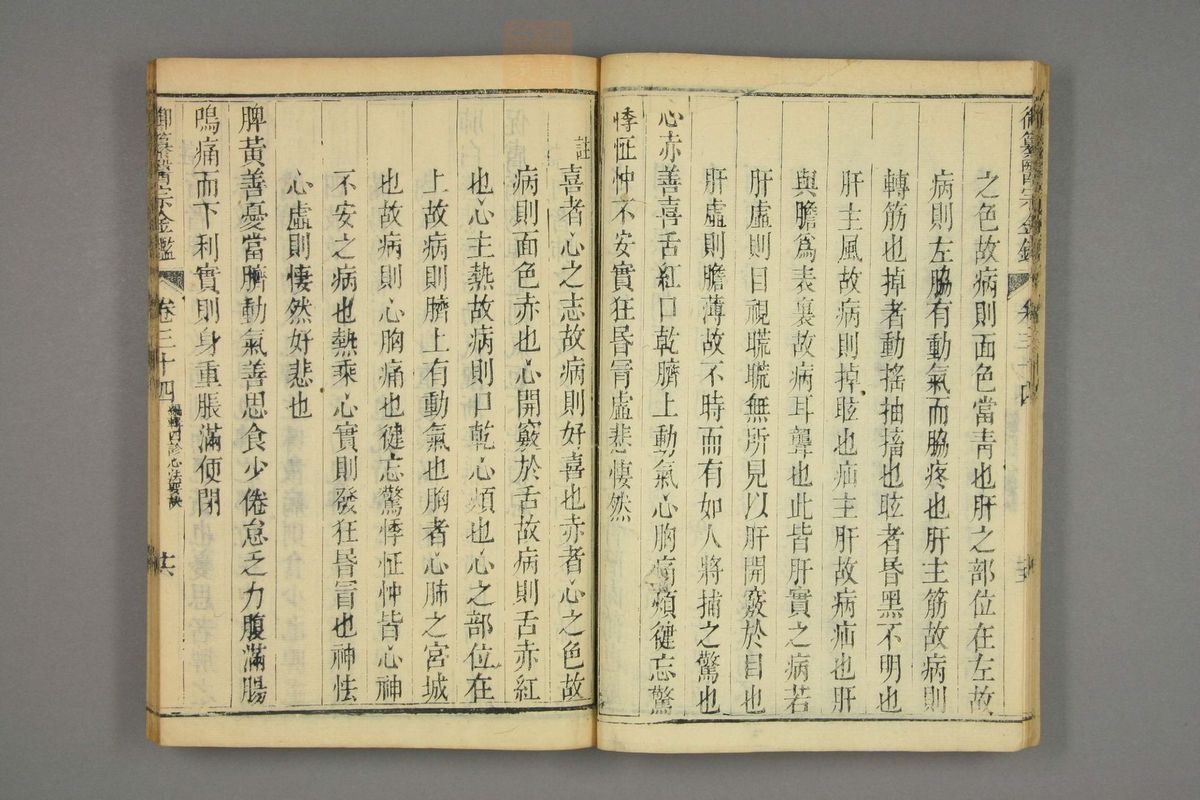 御纂醫宗金鑑 卷三十四
之色故病則面色當青也肝之部位在左故
病則左脇有動氣而脇疼也肝主筋故病則
轉筋也掉者動搖抽搐也眩者昏黑不明也
肝主風故病則掉眩也疝主肝故病疝也肝
與膽爲表裏故病耳聾也此皆肝實之病若
肝虛則目視䀮䀮無所見以肝開竅於目也
肝虛則膽薄故不時而有如人將捕之驚也
心赤善喜舌紅口乾臍上動氣心胸痛煩健忘驚
悸怔忡不安實狂昏冒虛悲悽然
註
喜者心之志故病則好喜也赤者心之色故
病則面色赤也心開竅於舌故病則舌赤紅
也心主熱故病則口乾心煩也心之部位在
上故病則臍上有動氣也胸者心肺之宮城
也故病則心胸痛也健忘驚悸怔忡皆心神
不安之病也熱乘心實則發狂昏冒也神怯
心虛則悽然好悲也
脾黃善憂當臍動氣善思食少倦怠乏力腹滿腸
鳴痛而下利實則身重脹滿便閉
御纂醫宗金鑑 卷三十四 編輯四診心法要訣 共